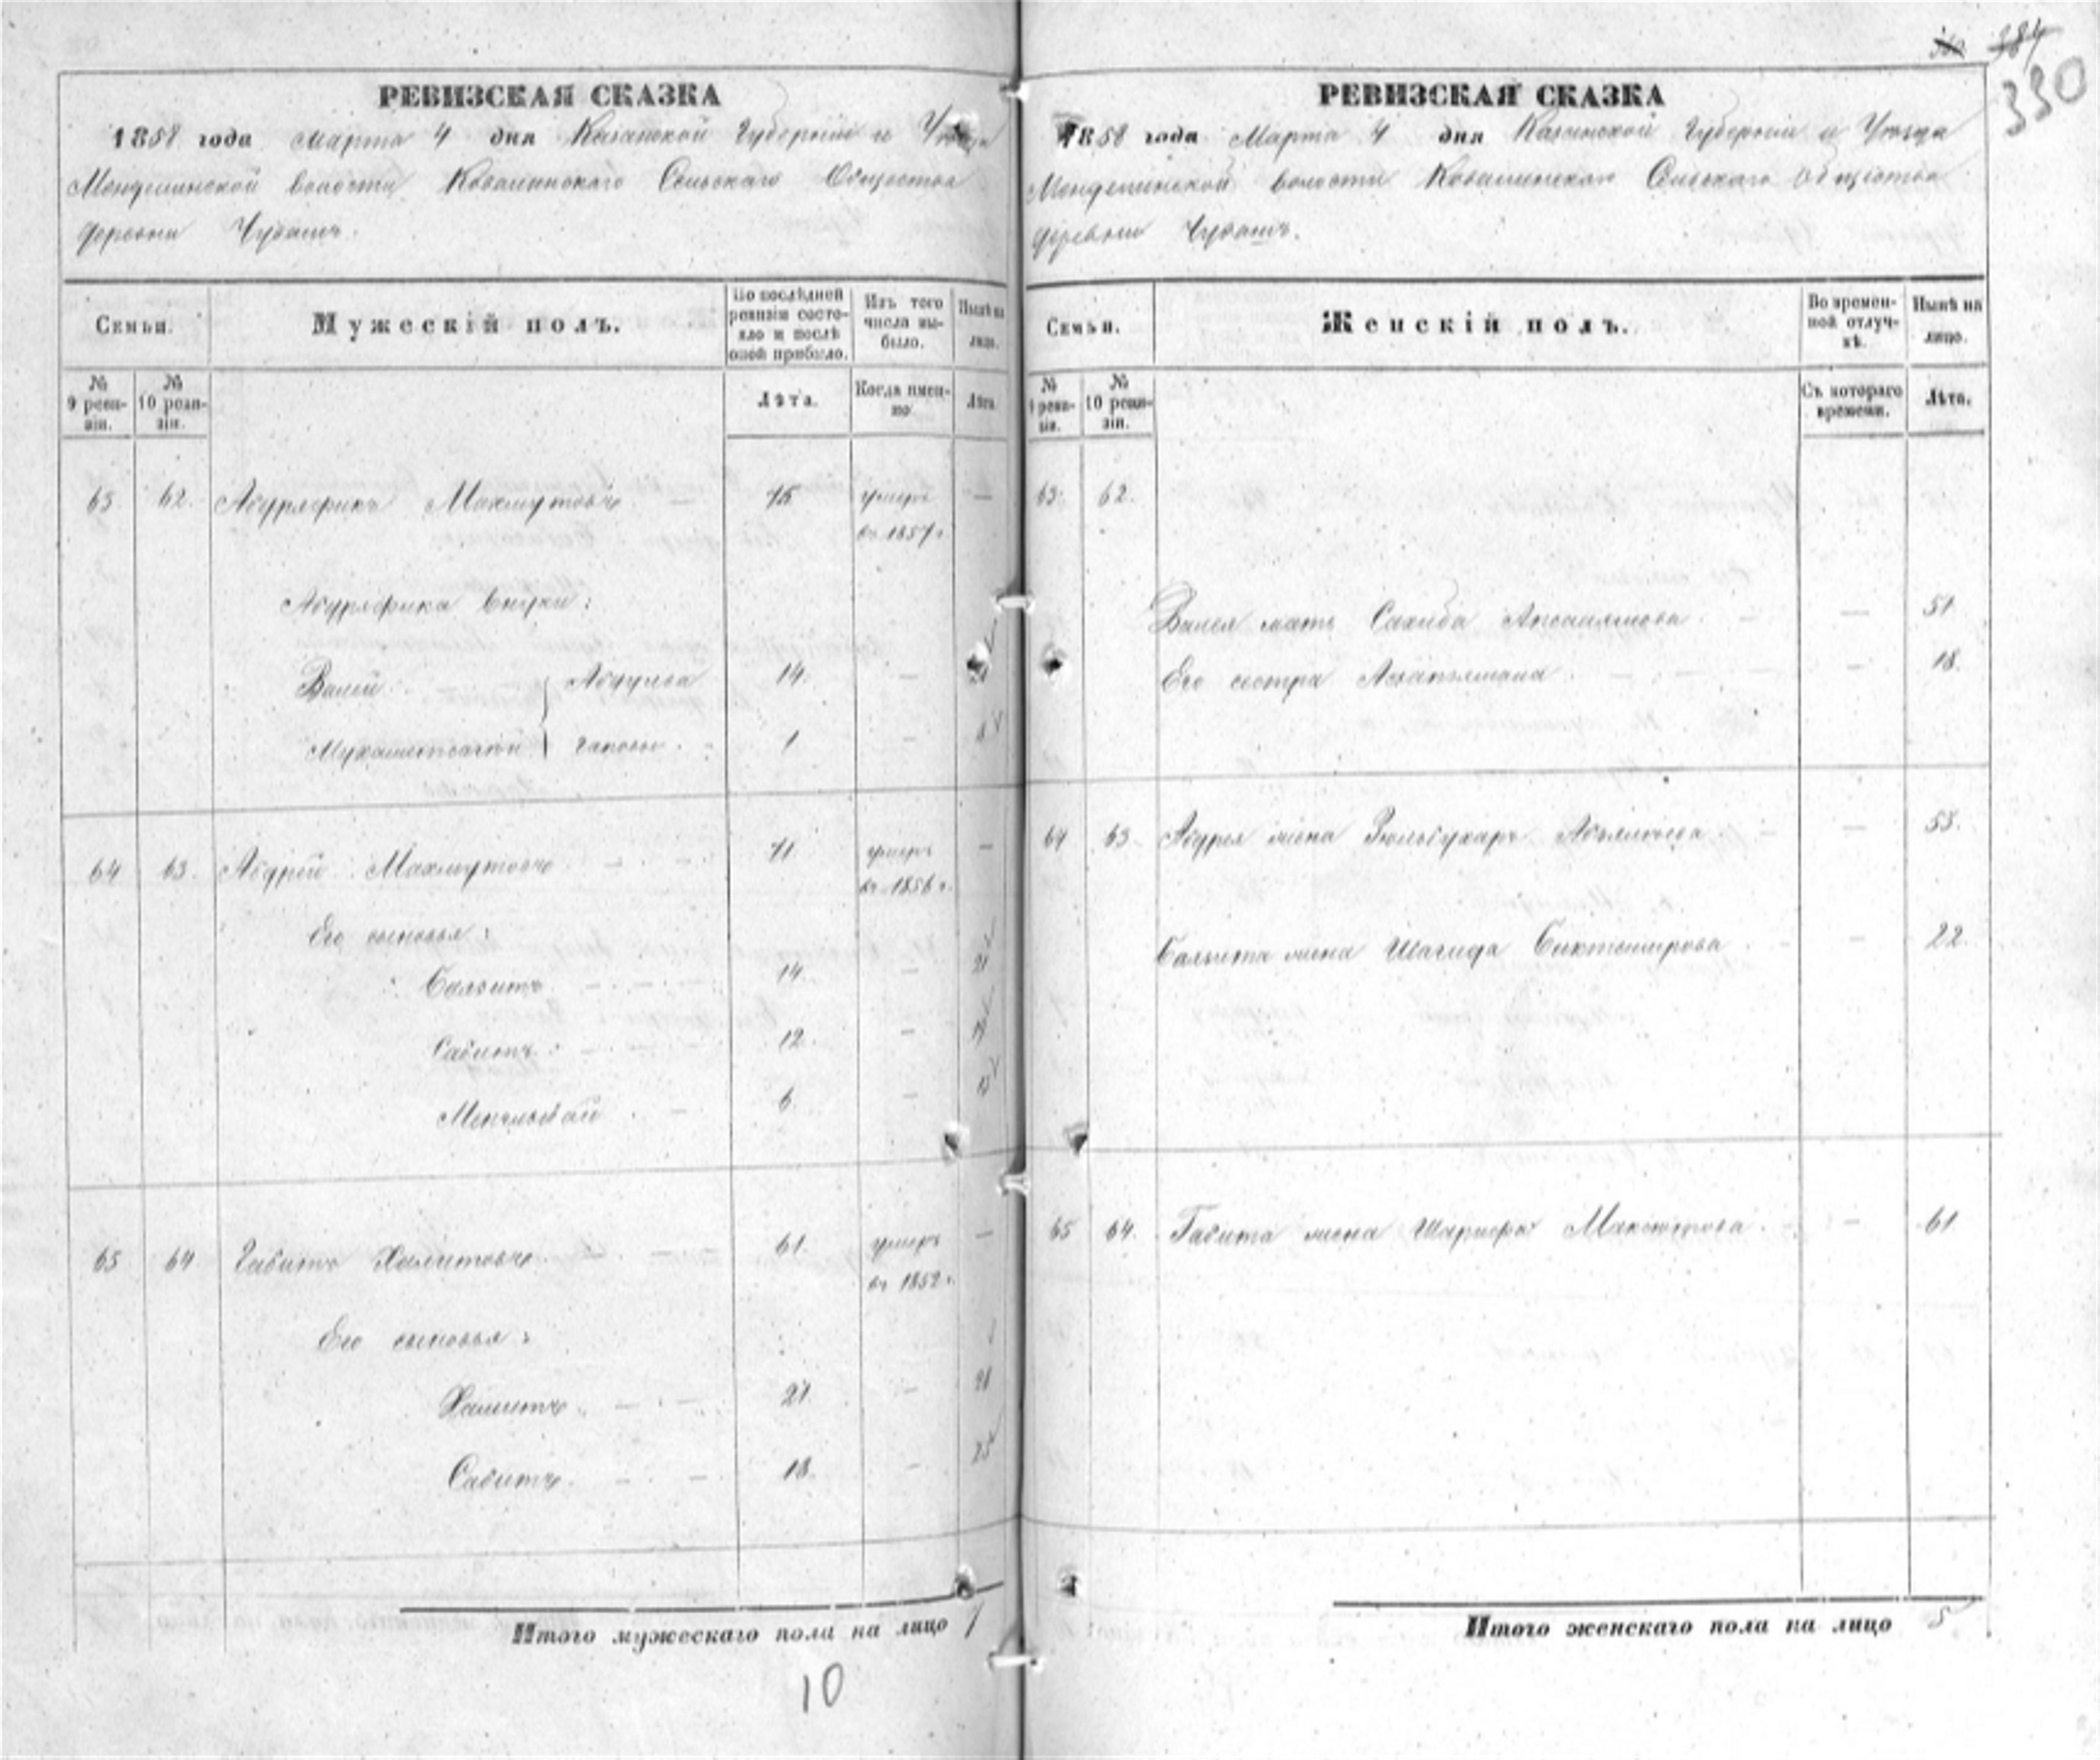 384
330
РЕВИЗСКАЯ СКАЗКА
1858 года Марта 4 дня Казанской Губернiи и Уѣзда
Менделинской волости Ковалинскаго Сельскаго Общества
деревни Чувашъ.
Семьи.
Мужескiй полъ.
По послѣдней ревизiи состояло и послѣ оной прибыло.
Изъ того числа выбыло.
Нынѣ на лицо.
№ 9 ревизiи.
№ 10 ревизiи.
Лѣта.
Когда именно.
Лѣта.
63 62. Абдряфикъ Махмутовъ 75 умеръ —
въ 1857 г.
Абдряфика внуки:
Валей Абдулга 14. —
1 —
64 63. Абдрей Махмутовъ 71 умеръ —
въ 1856 г.
Его сыновья:
14. — 21
Сабитъ 12 — 19
6 — 13
65 64 Габитъ Халитовъ 61 умеръ —
въ 1852 г.
Его сыновья:
Халитъ 21 — 28
Сабитъ 18. — 25
Итого мужескаго пола на лицо 7
10
РЕВИЗСКАЯ СКАЗКА
1858 года Марта 4 дня Казанской Губернiи и Уѣзда
Менделинской волости Ковалинскаго Сельскаго Общества
деревни Чувашъ.
Семьи.
Женскiй полъ.
Во временной отлучкѣ.
Нынѣ на лицо.
№ 9 ревизiи.
№ 10 ревизiи.
Съ котораго времени.
Лѣта.
63. 62.
Валея мать Сахиба — 51
Его сестра — 18.
64 63. Абдрея жена — 53.
жена Шагида Биктемирова — 22.
65 64. Габита жена Шарифа Максютова — 61
Итого женскаго пола на лицо 5